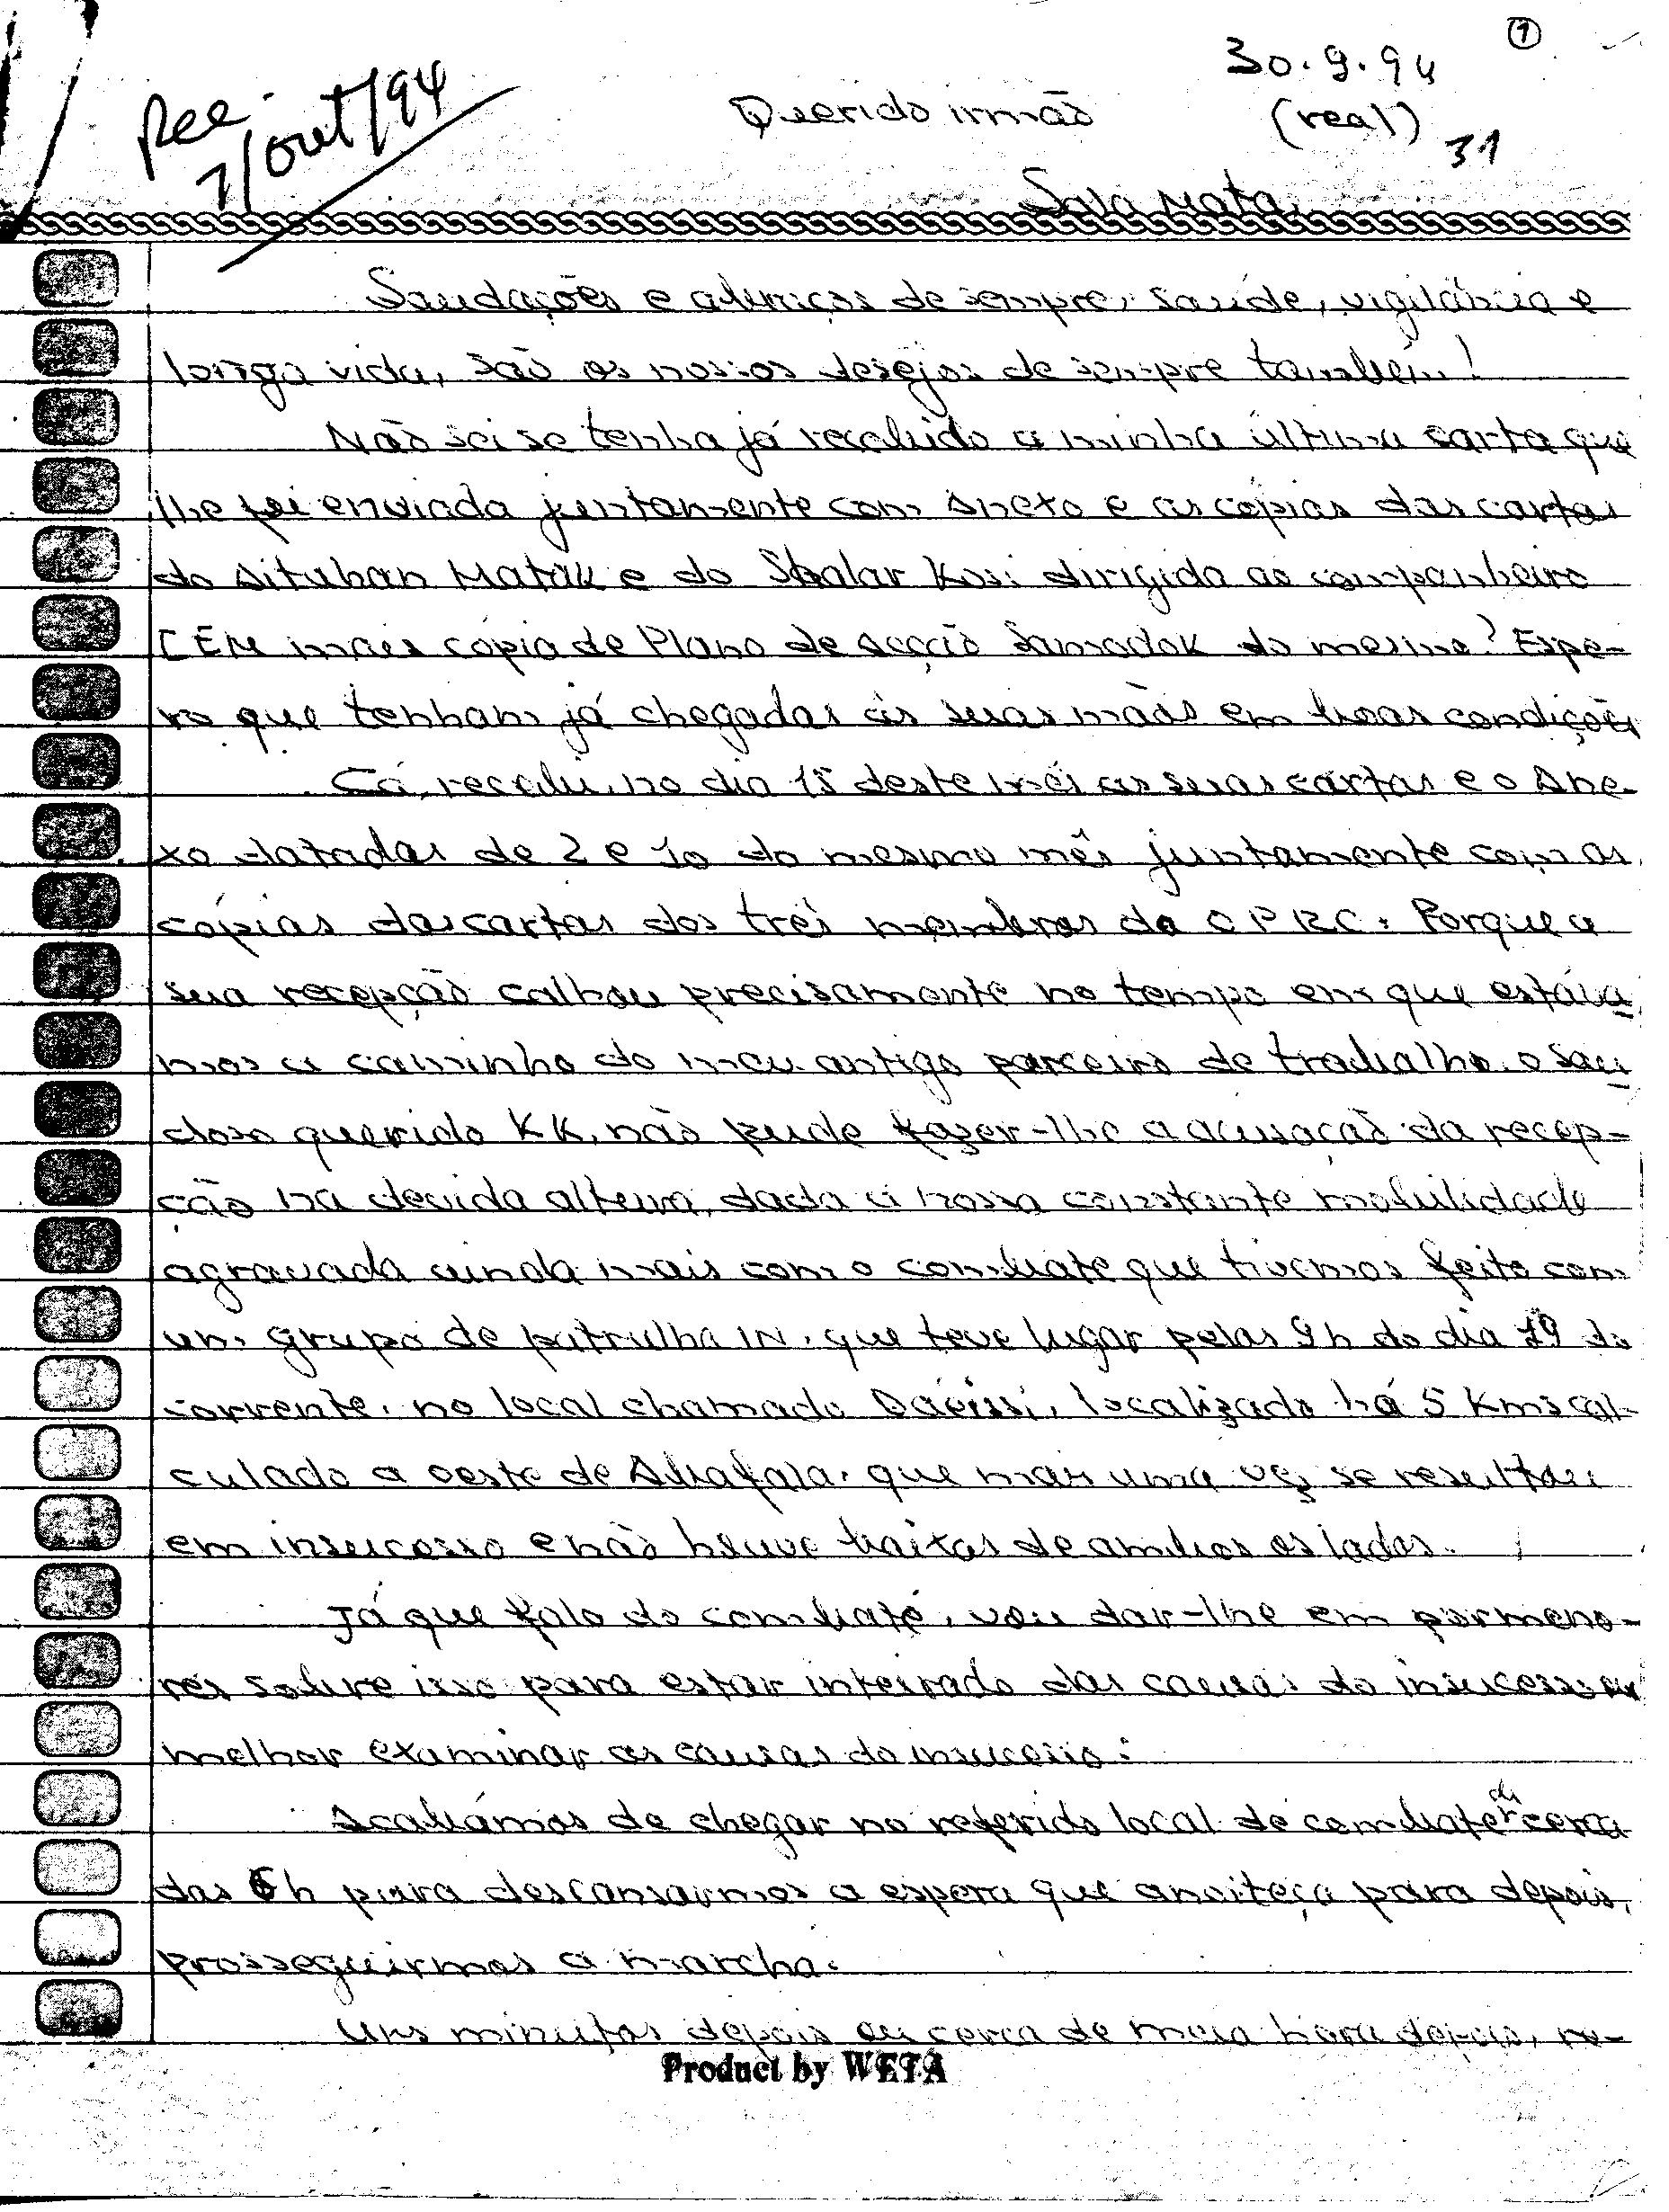 1
30.9.94
(real)
31
Rec.
7/out/94
Querido irmão
Sala Mata,
Saudações e abraços de sempre, saúde, vigilância e
longa vida, são os nossos desejos de sempre também!
Não sei se tenha já recebido a minha última carta que
lhe foi enviada juntamente com Aneto e as cópias das cartas
do Dituhan Matak e do Kosi dirigida ao companheiro
CEM mais cópia de Plano de Acção do mesmo? Espe-
ro que tenham já chegadas às suas mãos em boas condições
Cá, recebi, no dia 15 deste mês as suas cartas e o Ane-
xo datadas de 2 e 10 do mesmo mês juntamente com as
cópias das cartas dos três membros da CPRC. Porque a
sua recepção calhou precisamente no tempo em que estáva
mos a caminho do meu antigo parceiro de trabalho, o sau
doso querido KK, não pude fazer-lhe a acusação da recep-
ção na devida altura, dada a nossa constante mobilidade
agravada ainda mais com o combate que tivemos feito com
um grupo de patrulha IN, que teve lugar pelas 9h do dia 19 do
corrente, no local chamado localizado há 5 Kms cal-
culado a oeste de Abafala, que mais uma vez se resultou
em insucesso e não houve baixas de ambos os lados.
Já que falo do combate, vou dar-lhe em pormeno-
res sobre isso para estar inteirado das causas do insucesso
melhor examinar as causas do insucesso:
Acabámos de chegar no referido local de combate cerca
das 6h para descansarmos a espera que anoiteça para depois,
prosseguirmos a marcha.
Uns minutos depois ou cerca de meia hora depois, re-
Product by WETA